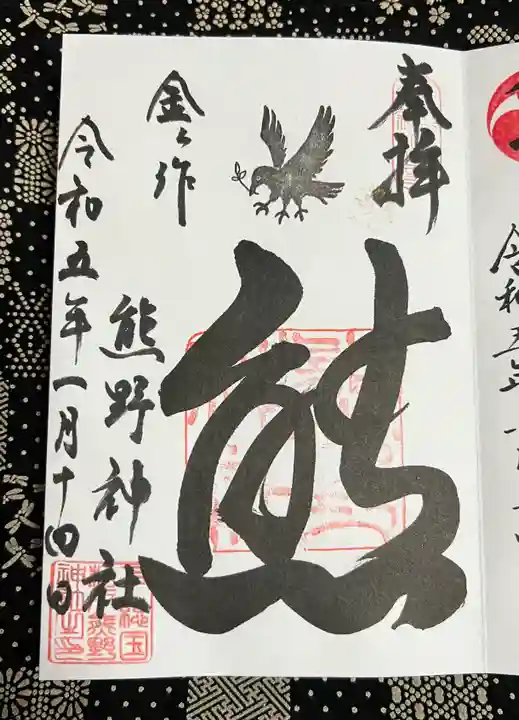 奉拝
熊
金ヶ作
熊野神社
令和五年一月十四日
令和五年一月十四